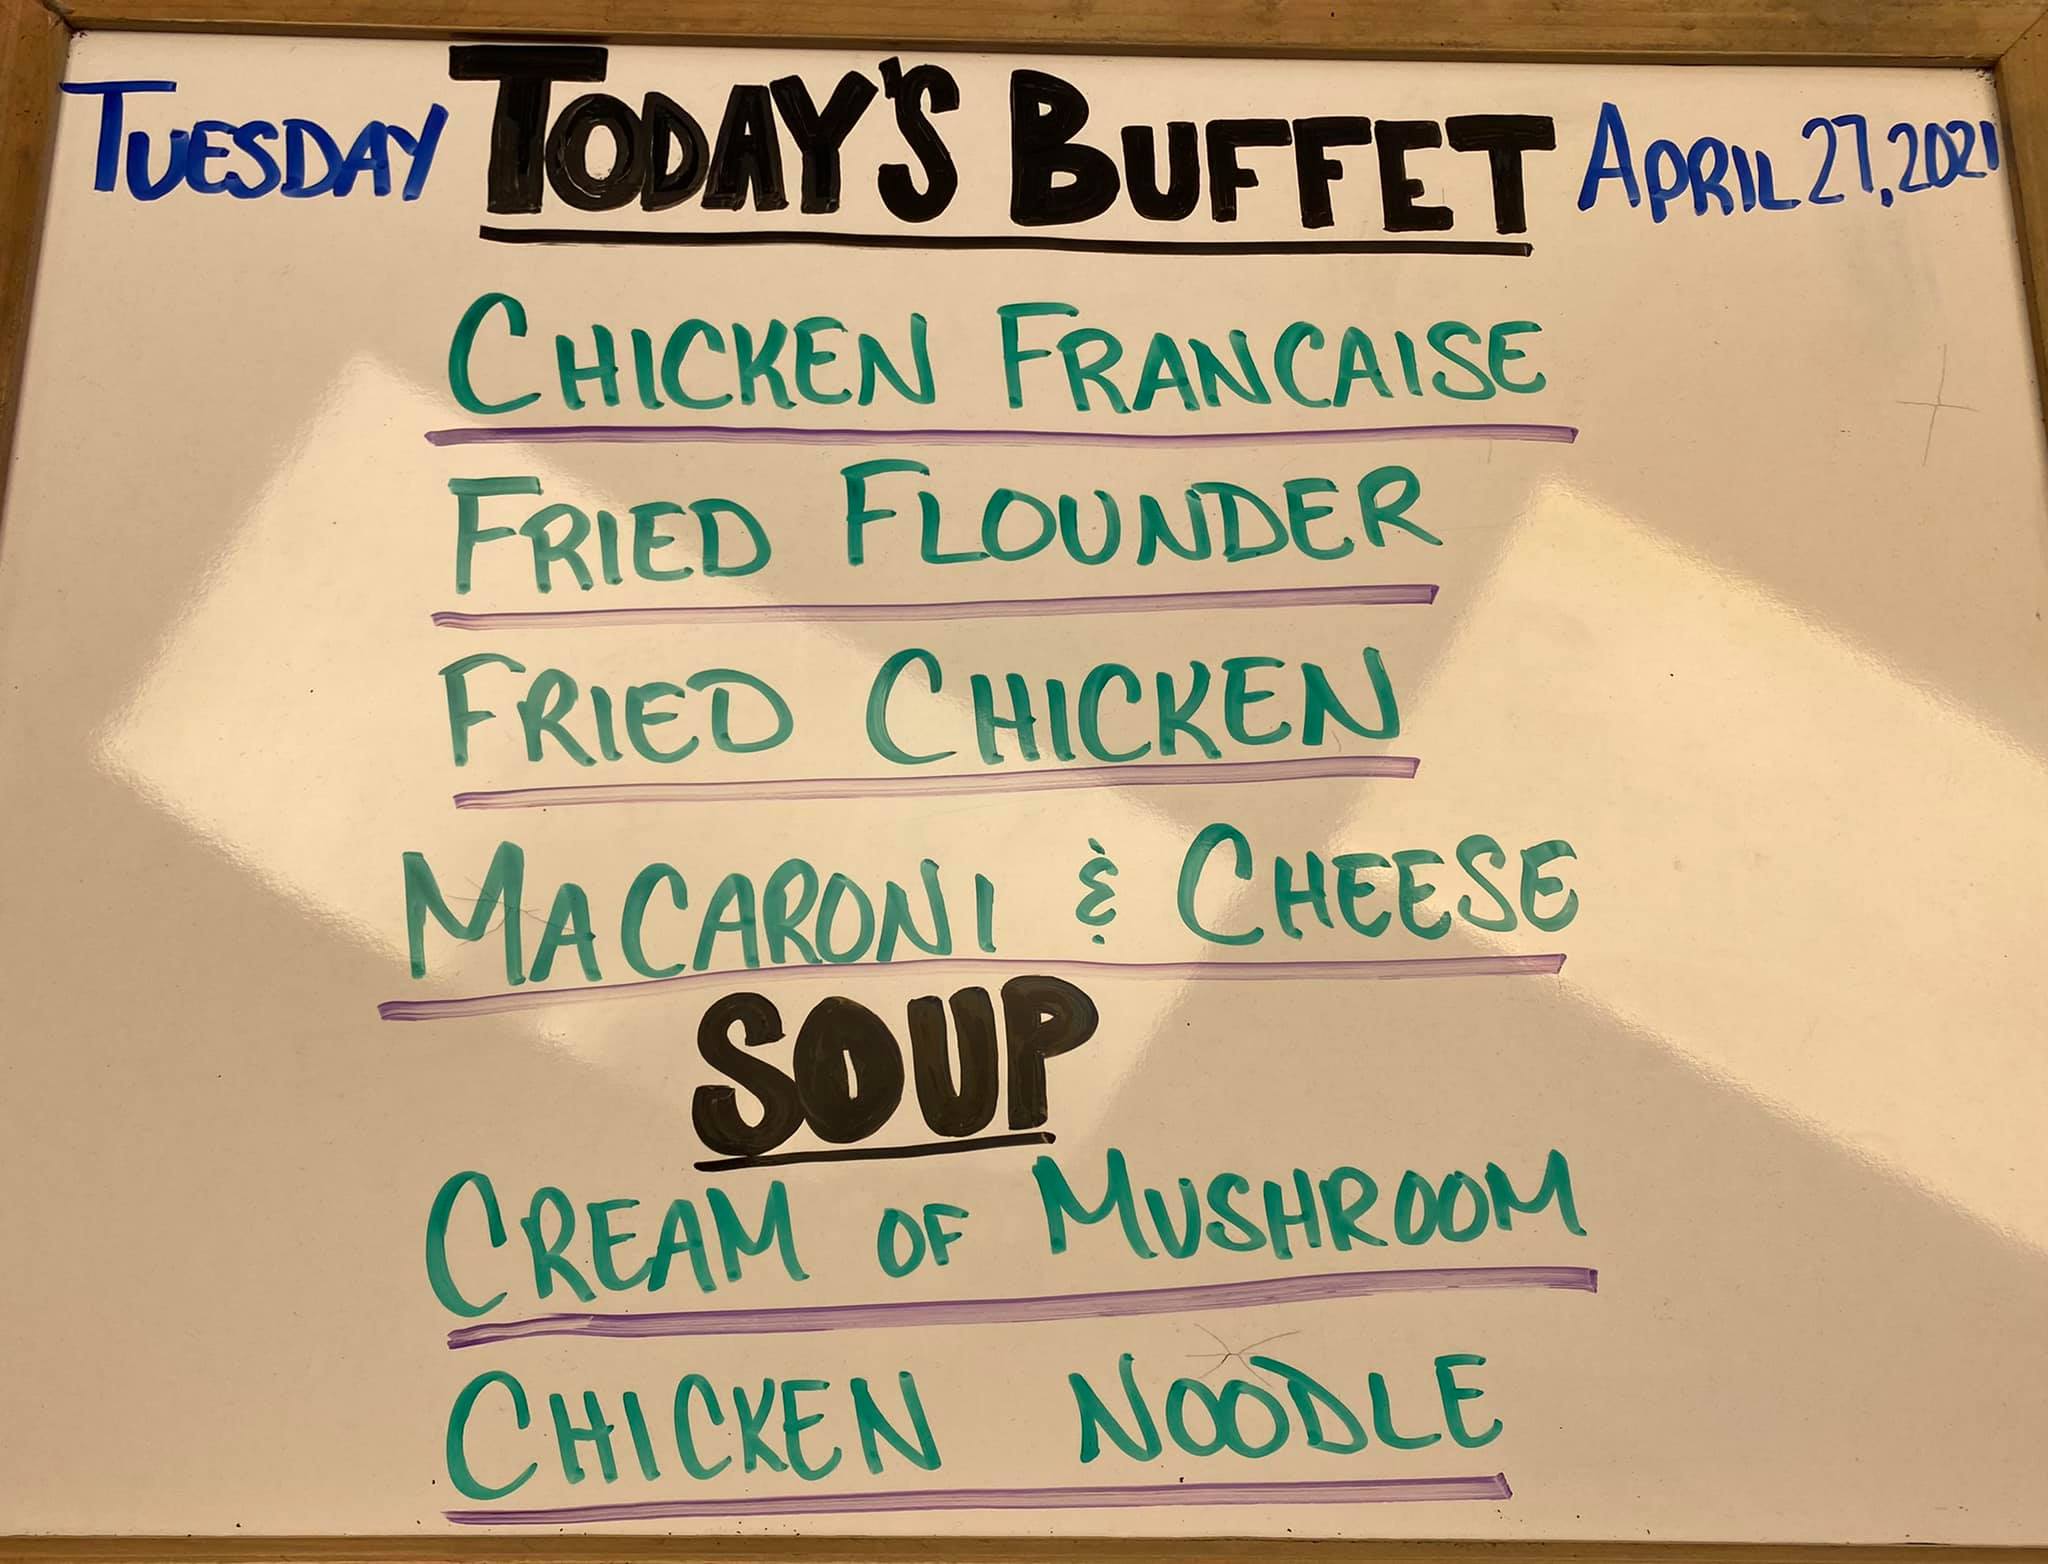 TUESDAY TODAY'S BUFFET APRIL 27, 2021
CHICKEN FRANCAISE
FRIED FLOUNDER
FRIED CHICKEN
MACARONI & CHEESE
SOUP
CREAM OF MUSHROOM
CHICKEN NOODLE